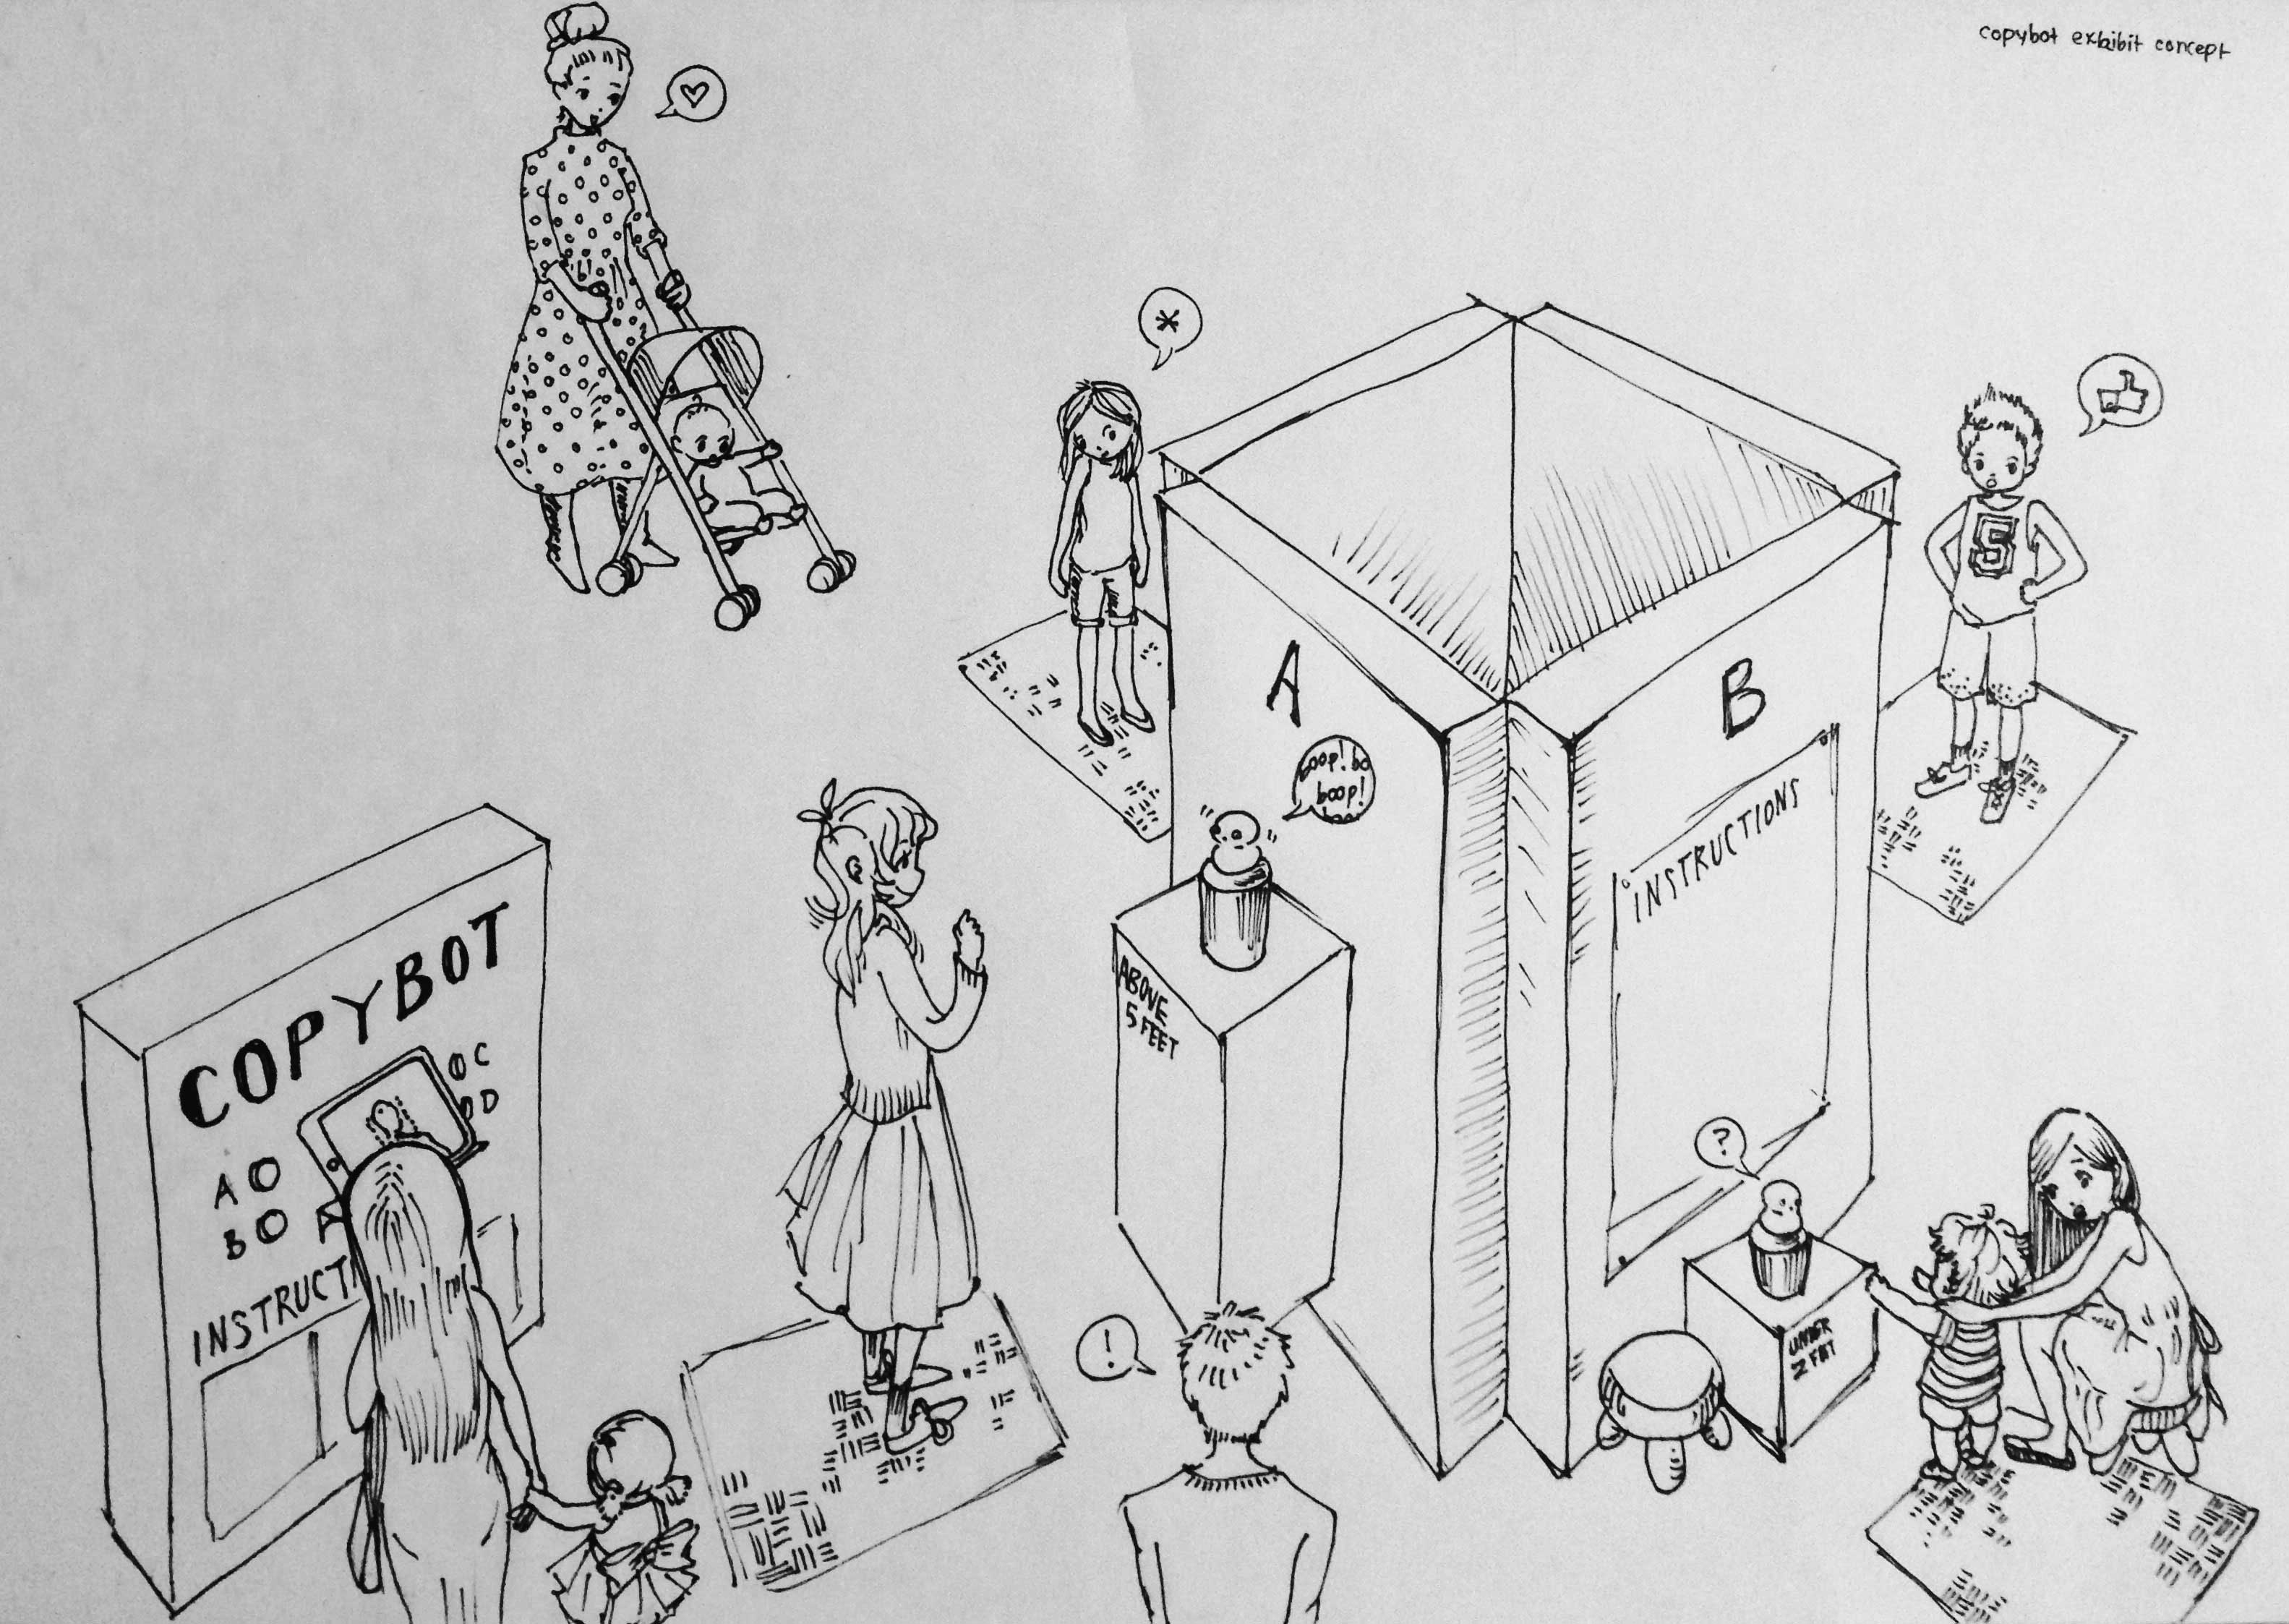 copybot exhibit concept
5
A
B
INSTRUCTIONS
ABOVE
5 FEET
COPYBOT
C
D
A
B
INSTRUCTI
?
!
UNDER
2 FEET